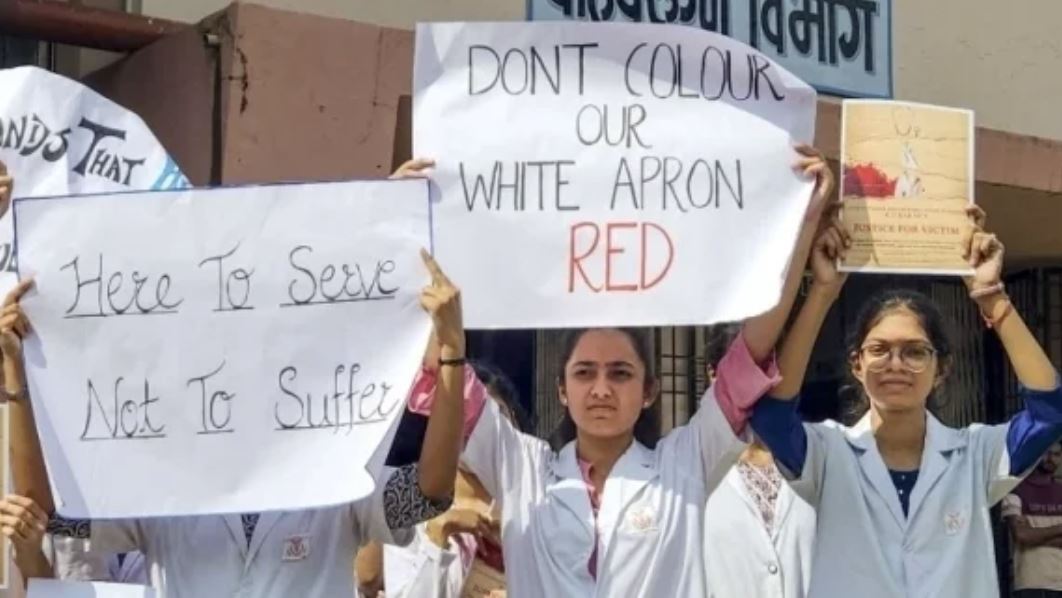 विभाग
ANDS THAT
Here To Serve
Not To Suffer
DONT COLOUR
OUR
WHITE APRON
RED
JUSTICE FOR VICTIM